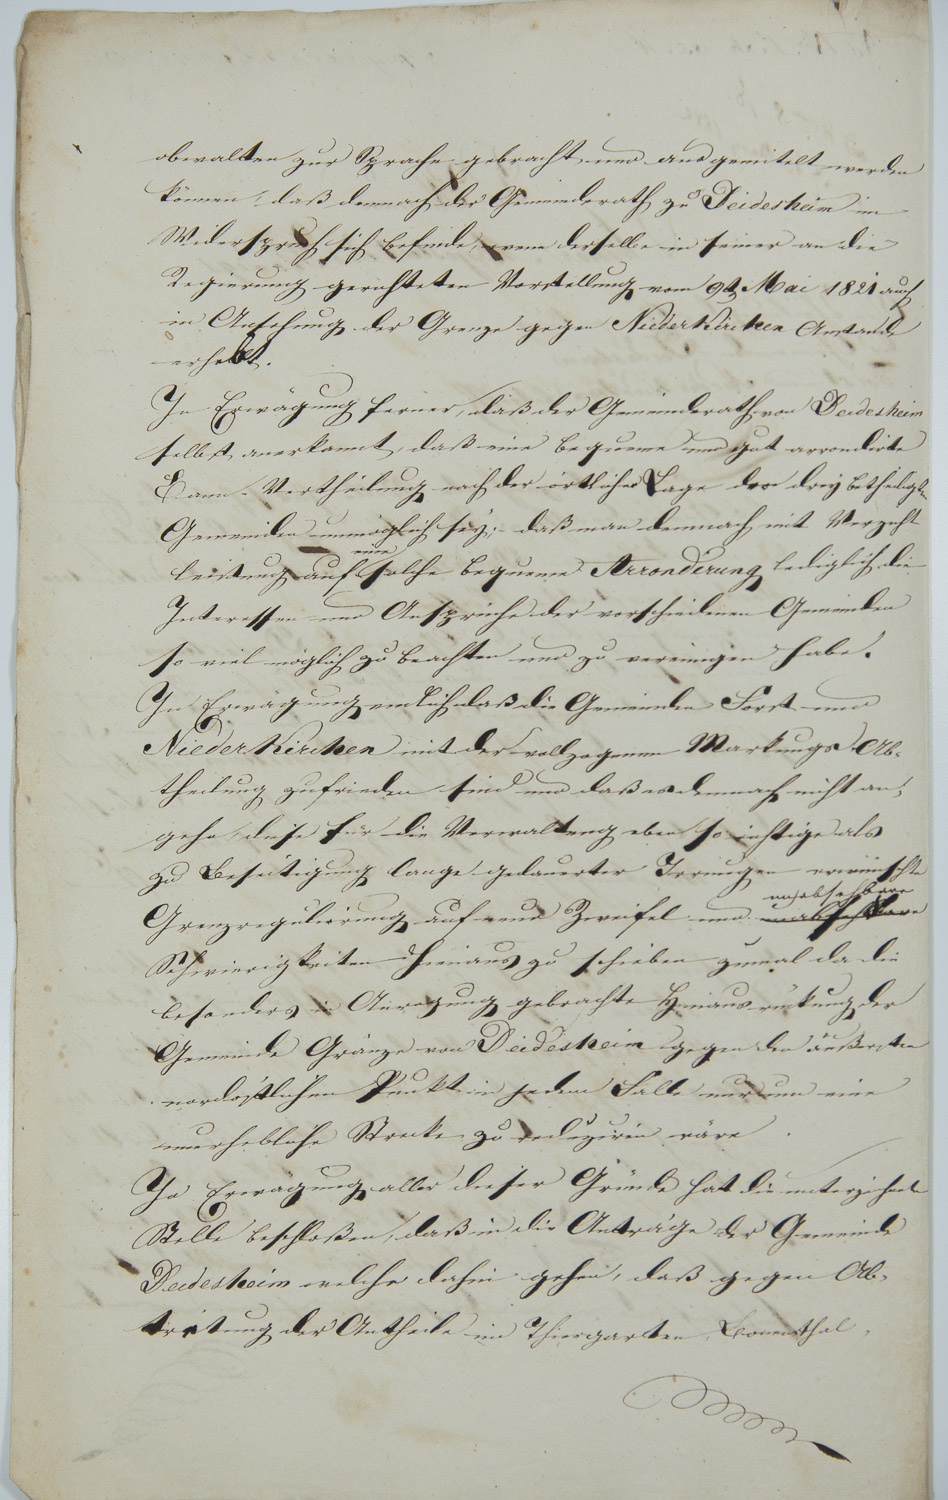 obwalten zur Sprache gebracht und ausgemitelt werden
können, daß demnach der Gemeinderath zu Deidesheim im
Widerspruch sich befinde, wenn derselbe in seiner an die
Regierung gerichteten Vorstellung vom 9t Mai 1821 auch
in Ansehung der Grenze gegen Niederkirchen Anstände
erhebt.
In Erwägung ferner, daß der Gemeinderath von Deidesheim
selbst anerkannt, daß eine bequeme und gut arrondirte
Bann-Vertheilung nach der örtlichen Lage der drey betheiligten
Gemeinden unmöglich sey; daß man demnach mit Verzicht
leistung auf eine solche bequeme Arrondirung lediglich die
Interessen und Ansprüche der verschiedenen Gemeinden
so viel möglich zu beachten und zu vereinigen habe.
In Erwägung endlich, daß die Gemeinden Forst und
Niederkirchen mit der vollzogenen Markungs-Ab-
theilung zufrieden sind und daß es demnach nicht an-
gehe, diese für die Verwaltung eben so wichtige als
zu Beseitigung lange gedauerter Irrungen erwünschte
Grenzregulierung auf neue Zweifel und unabsehbare
Schwierigkeiten hinaus zu schieben zumal da die
besonders in Anregung gebrachte Hinausrückung der
Gemeinde Gränze von Deidesheim gegen den äußersten
nordöstlichen Punkt in jedem Falle nur um eine
unerhebliche Strecke zu reduziren wäre.
In Erwägung aller dieser Gründe hat die unterzeichnete
Stelle beschloßen, daß in die Anträge der Gemeinde
Deidesheim welche dahin gehen, daß gegen Ab-
tretung der Antheile im Thiergarten,